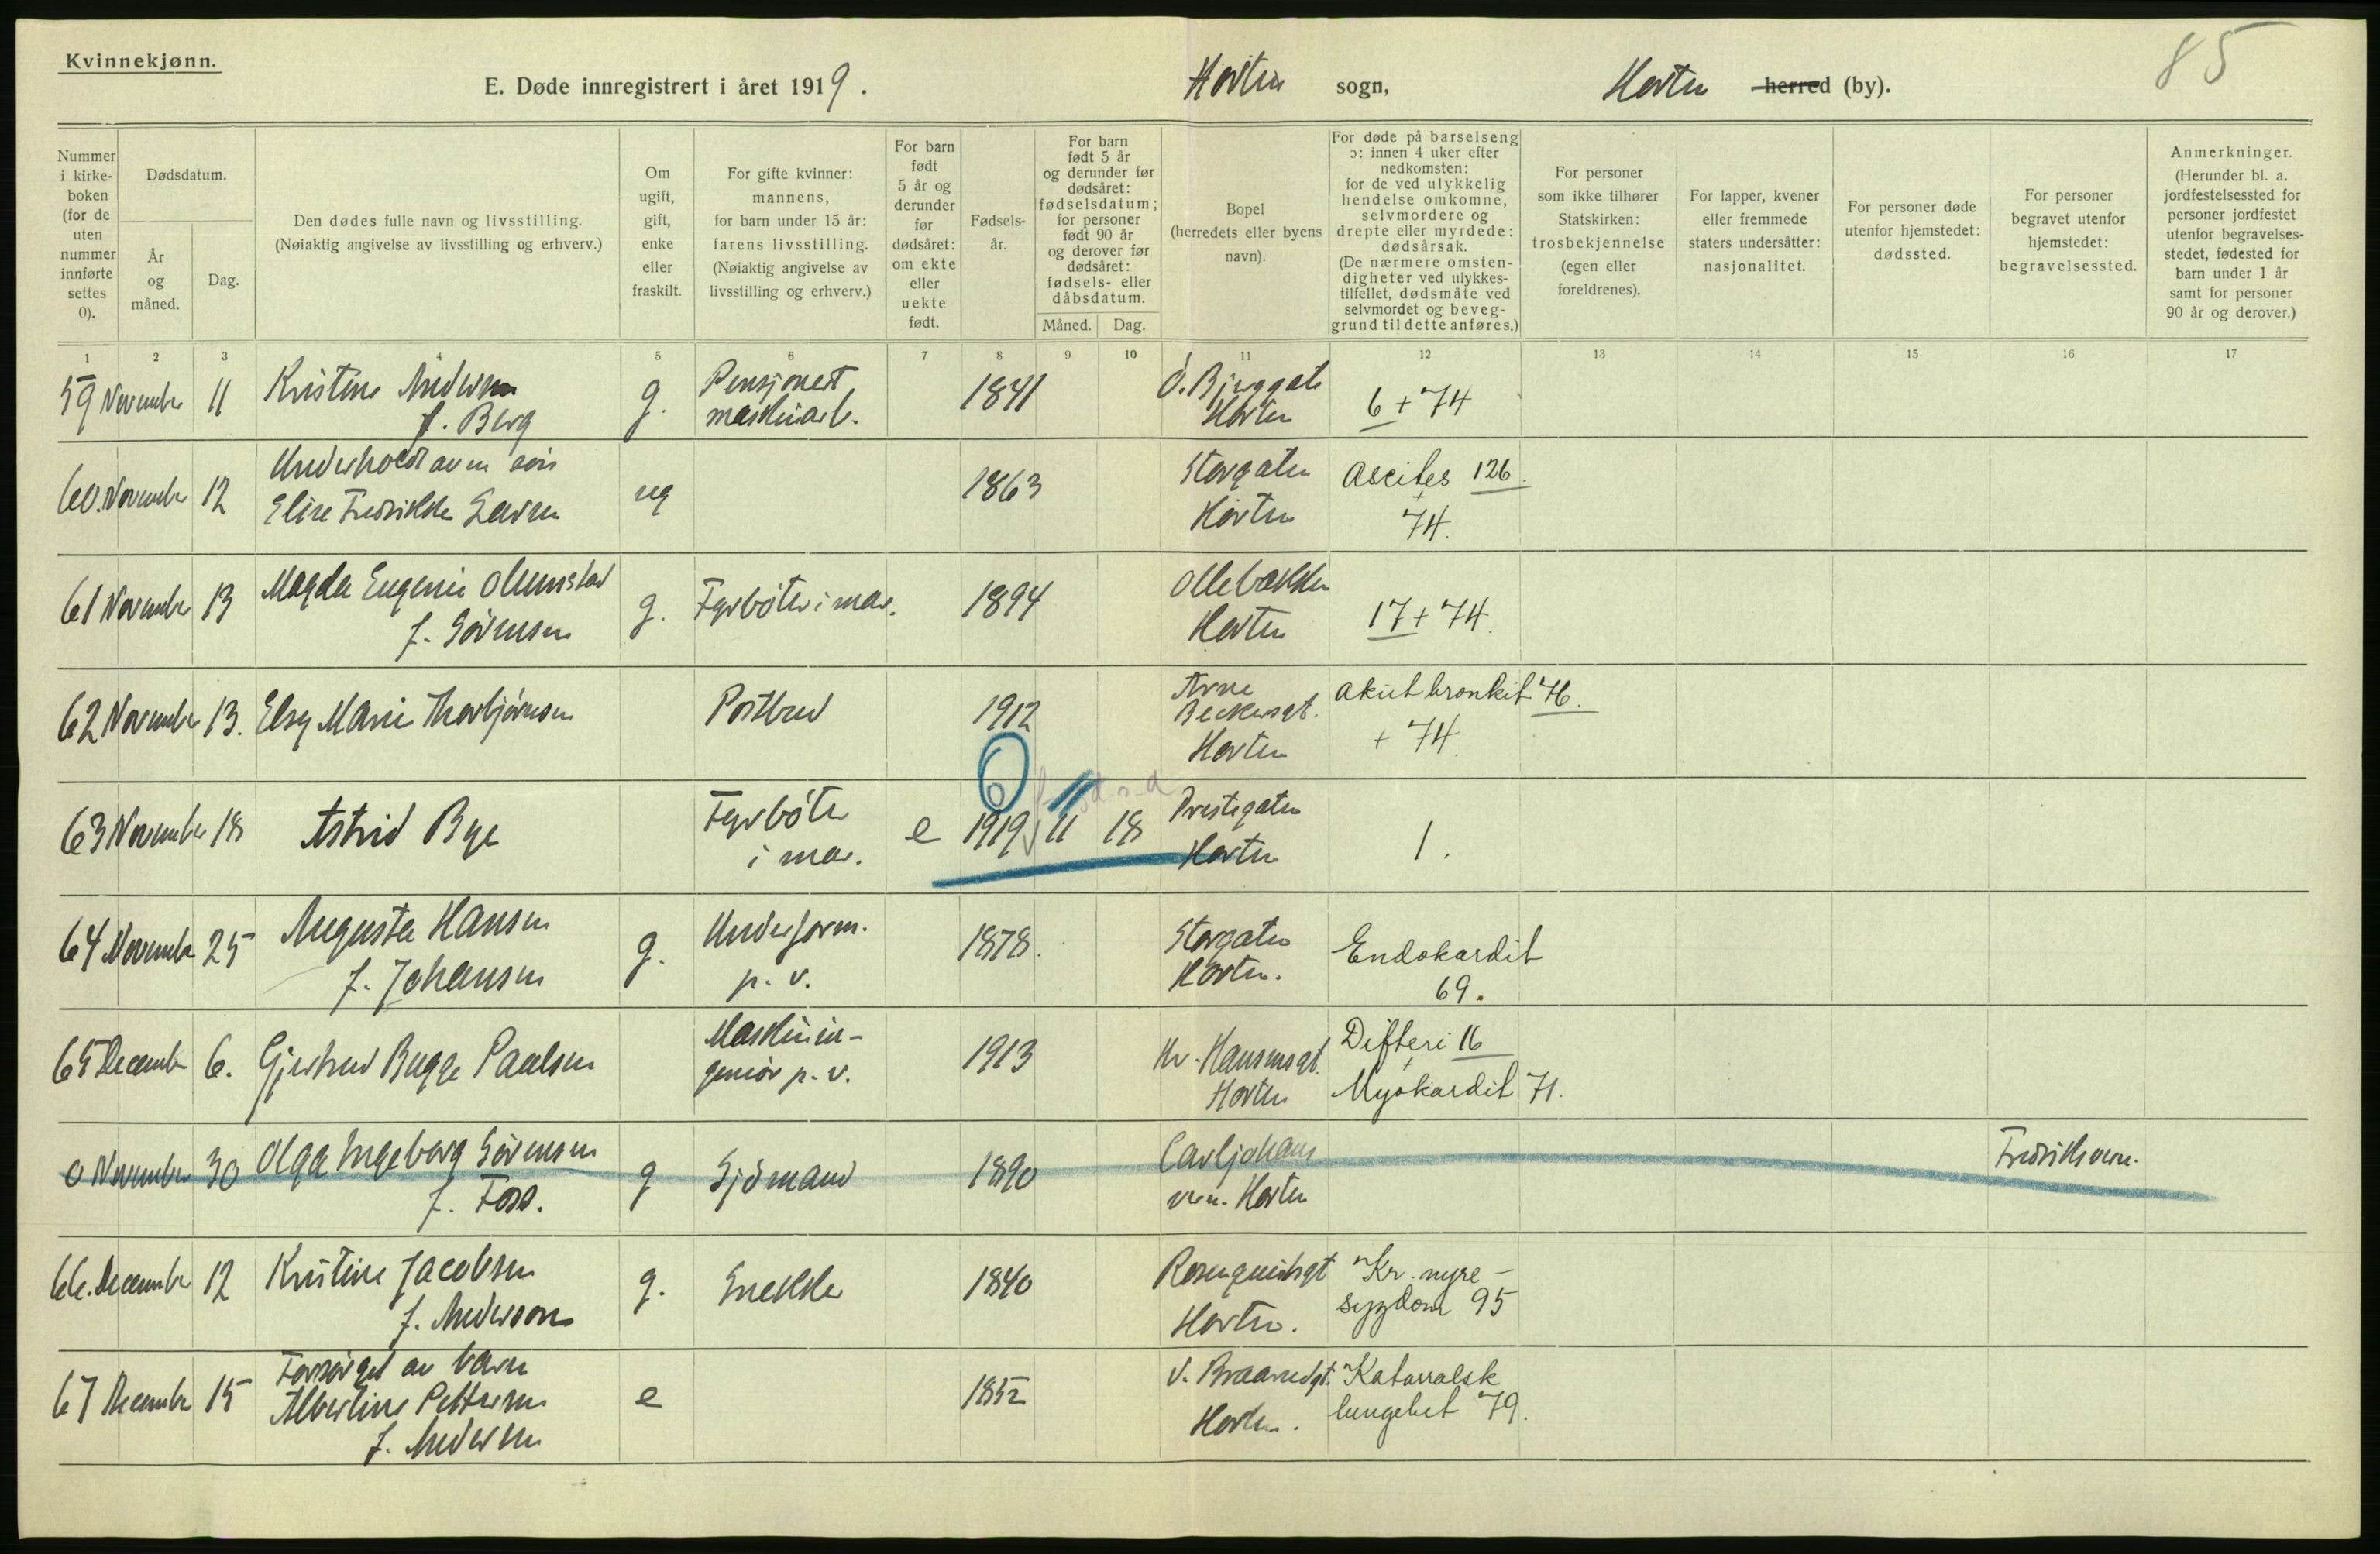 Kvinnekjønn.
E. Døde innregistrert i året 1919.
Horten sogn,
Horten herred (by).
85
Nummer i kirkeboken (for de uten nummer innførte settes 0).
Dødsdatum.
År og måned.
Dag.
Den dødes fulle navn og livsstilling.
(Nøiaktig angivelse av livsstilling og erhverv.)
Om ugift, gift, enke eller fraskilt.
For gifte kvinner: mannens, for barn under 15 år: farens livsstilling.
(Nøiaktig angivelse av livsstilling og erhverv.)
For barn født 5 år og derunder før dødsåret: om ekte eller uekte født.
Fødselsår.
For barn født 5 år og derunder før dødsåret: fødselsdatum; for personer født 90 år og derover før dødsåret: fødsels- eller dåbsdatum.
Måned.
Dag.
Bopel (herredets eller byens navn).
For døde på barselseng ɔ: innen 4 uker efter nedkomsten: for de ved ulykkelig hendelse omkomne, selvmordere og drepte eller myrdede: dødsårsak.
(De nærmere omstendigheter ved ulykkestilfellet, dødsmåte ved selvmordet og beveggrund til dette anføres.)
For personer som ikke tilhører Statskirken: trosbekjennelse (egen eller foreldrenes).
For lapper, kvener eller fremmede staters undersåtter: nasjonalitet.
For personer døde utenfor hjemstedet: dødssted.
For personer begravet utenfor hjemstedet: begravelsessted.
Anmerkninger.
(Herunder bl. a. jordfestelsessted for personer jordfestet utenfor begravelsesstedet, fødested for barn under 1 år samt for personer 90 år og derover.)
1 2 3 4 5 6 7 8 9 10 11 12 13 14 15 16 17
59 November 11 Kristine Andersen f. Berg g. Pensjonert maskinarb. 1841 Horten 6 + 74
60. November 12 Underholdt av en søn Elise Fredrikke Larsen ug 1863 Storgaten Horten Ascites 126. + 74.
61 November 13 Magda Eugenie f. Sørensen g. Fyrbøter i mar. 1894 Ollebakken Horten 17 + 74.
62 November 13. Elsy Marie Thorbjørnsen Postbud 1912 Arne Beckersgt. Horten Akut bronkit 76. + 74.
0
63 November 18 Astrid Bye Fyrbøter i mar. e 1919 11 18 Prestegaten Horten 1.
64 November 25 Augusta Hansen f. Johansen g. Underform. p. v. 1878. Storgaten Horten. Endokardit 69.
65 December 6. Gjertrud Bugge Paulsen Maskiningeniør p. v. 1913 Kr. Hansensgt. Horten Difteri 16 + Myokardit 71.
0 November 30 Olga Ingeborg Sørensen f. Foss. g Sjømand 1890 Carljohans vern. Horten Fredriksvern.
66. December 12 Kristine Jacobsen f. Anderson g. Snekker 1840 Horten. Kr. nyresygdom 95
67 December 15 Forsørget av barn Albertine Pettersen f. Andersen e 1852 V. Braarudgt. Horten. Katarralsk lungebet 79.